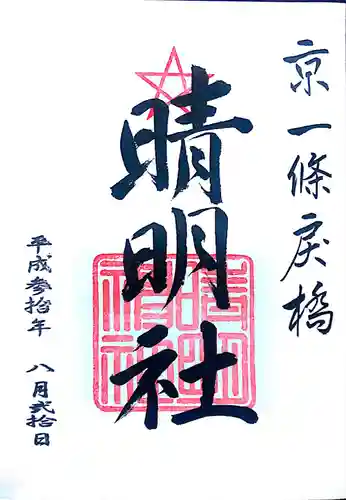 京一條戻橋
晴明社
晴明神社
平成参拾年 八月弐拾日